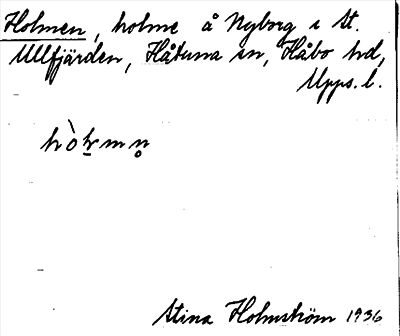 Holmen, holme å Nyborg i St.
Ullfjärden, Håtuna sn, Håbo hd,
Upps. l.
hòl̥mn̥
Stina Holmström 1936